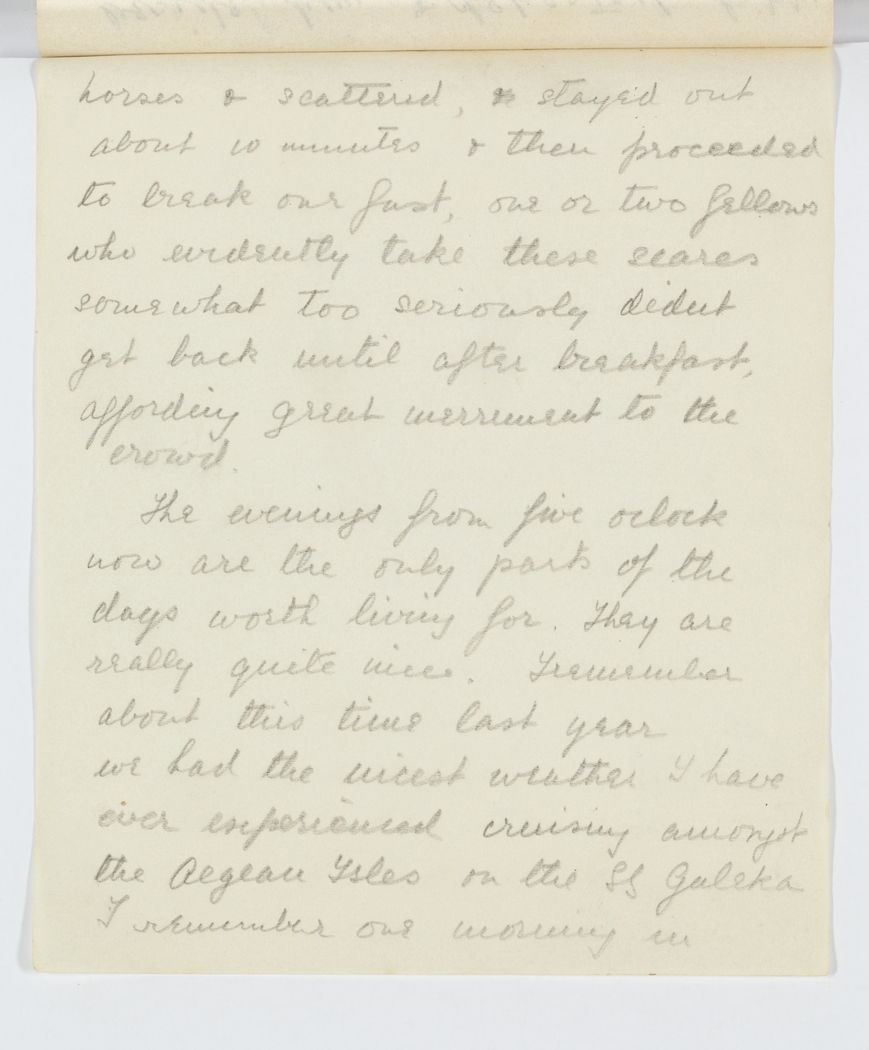 horses & scattered, & stayed out
about 10 minutes & then proceeded
to break our fast, one or two fellows
who evidently take these scares
somewhat too seriously didnt
get back until after breakfast,
affording great merriment to the
crowd.
The evenings from five oclock
now are the only parts of the
days worth living for. They are
really quite nice. I remember
about this time last year
we had the nicest weather I have
ever experienced cruising amongst
the Aegean Isles on the SS Galeka
I remember one morning in